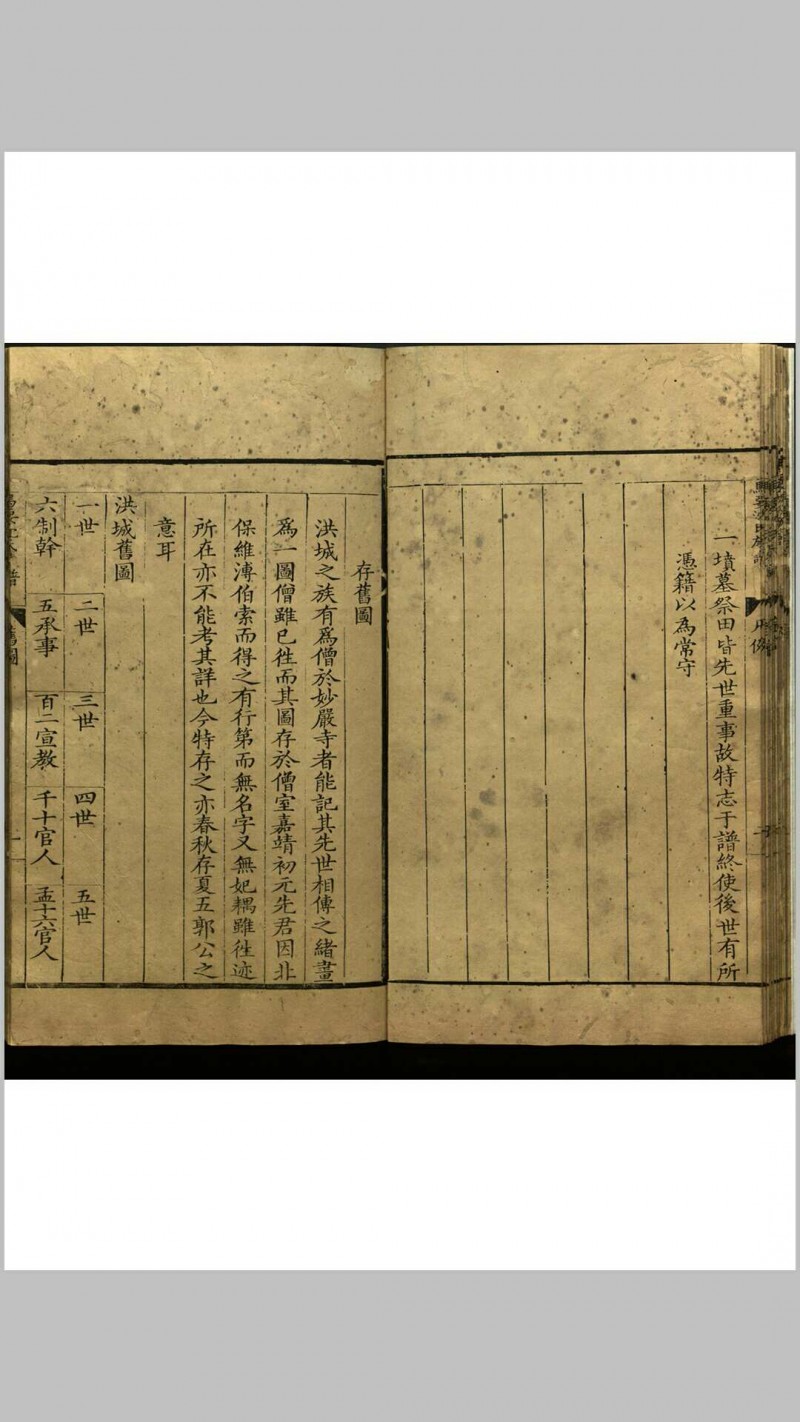 一墳墓祭田皆先世重事故特志于譜終使後世有所
憑籍以為常守
存舊圖
洪城之族有爲僧於妙嚴寺者能記其先世相傳之緒畫
爲一圖僧雖已徃而其圖存於僧室嘉靖初元先君因北
保維溥伯索而得之有行第而無名字又無妃耦雖徃迹
所在亦不能考其詳也今特存之亦春秋存夏五郭公之
意耳
洪城舊圖
一世 二世 三世 四世 五世
六制幹 五承事 百二宣教 千十官人 孟十六官人
譜 舊圖